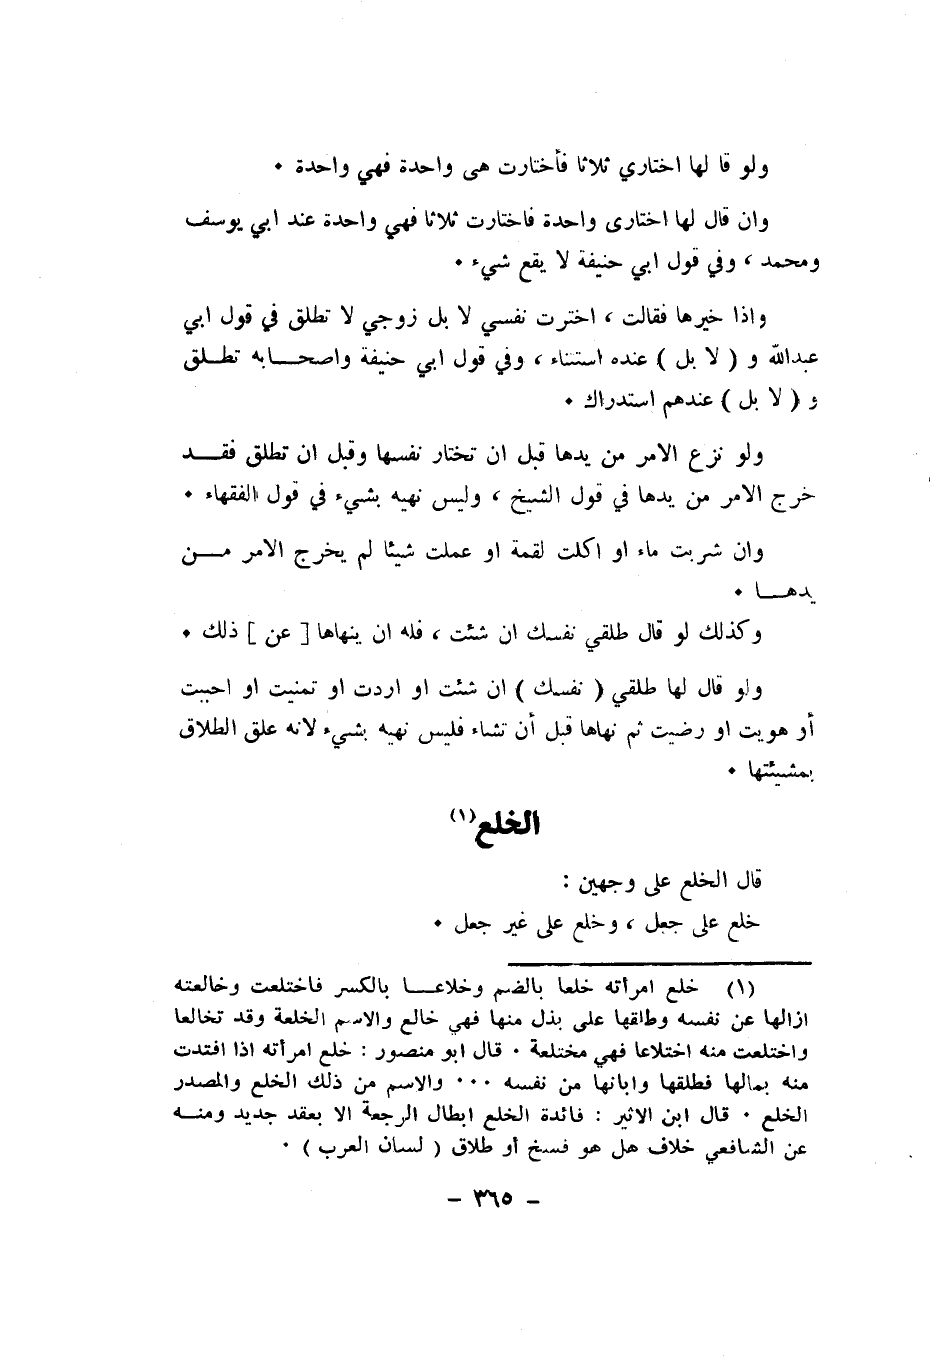 ولو قا لها اختاري ثلاثا فأختارت هى واحدة فهي واحدة .
وان قال لها اختارى واحدة فاختارت ثلاثا فهي واحدة عند ابي يوسف
ومحمد ، وفي قول ابي حنيفة لا يقع شيء .
واذا خيرها فقالت ، اخترت نفسي لا بل زوجي لا تطلق في قول ابي
عبدالله و ( لا بل ) عنده استثناء ، وفي قول ابي حنيفة واصحابه تطلق
و ( لا بل ) عندهم استدراك .
ولو نزع الامر من يدها قبل ان تختار نفسها وقبل ان تطلق فقد
خرج الامر من يدها في قول الشيخ ، وليس نهيه بشيء في قول الفقهاء .
وان شربت ماء او اكلت لقمة او عملت شيئا لم يخرج الامر من
يدها .
وكذلك لو قال طلقي نفسك ان شئت ، فله ان ينهاها [ عن ] ذلك .
ولو قال لها طلقي ( نفسك ) ان شئت او اردت او تمنيت او احببت
أو هويت او رضيت ثم نهاها قبل أن تشاء فليس نهيه بشيء لانه علق الطلاق
بمشيئتها .
الخلع (١)
قال الخلع على وجهين :
خلع على جعل ، وخلع على غير جعل .
(١) خلع امرأته خلعا بالضم وخلاعا بالكسر فاختلعت وخالعته
ازالها عن نفسه وطلقها على بذل منها فهي خالع والاسم الخلعة وقد تخالعا
واختلعت منه اختلاعا فهي مختلعة . قال ابو منصور : خلع امرأته اذا افتدت
منه بمالها فطلقها وابانها من نفسه ... والاسم من ذلك الخلع والمصدر
الخلع . قال ابن الاثير : فائدة الخلع ابطال الرجعة الا بعقد جديد ومنه
عن الشافعي خلاف هل هو فسخ أو طلاق ( لسان العرب ) .
- ٣٦٥ -